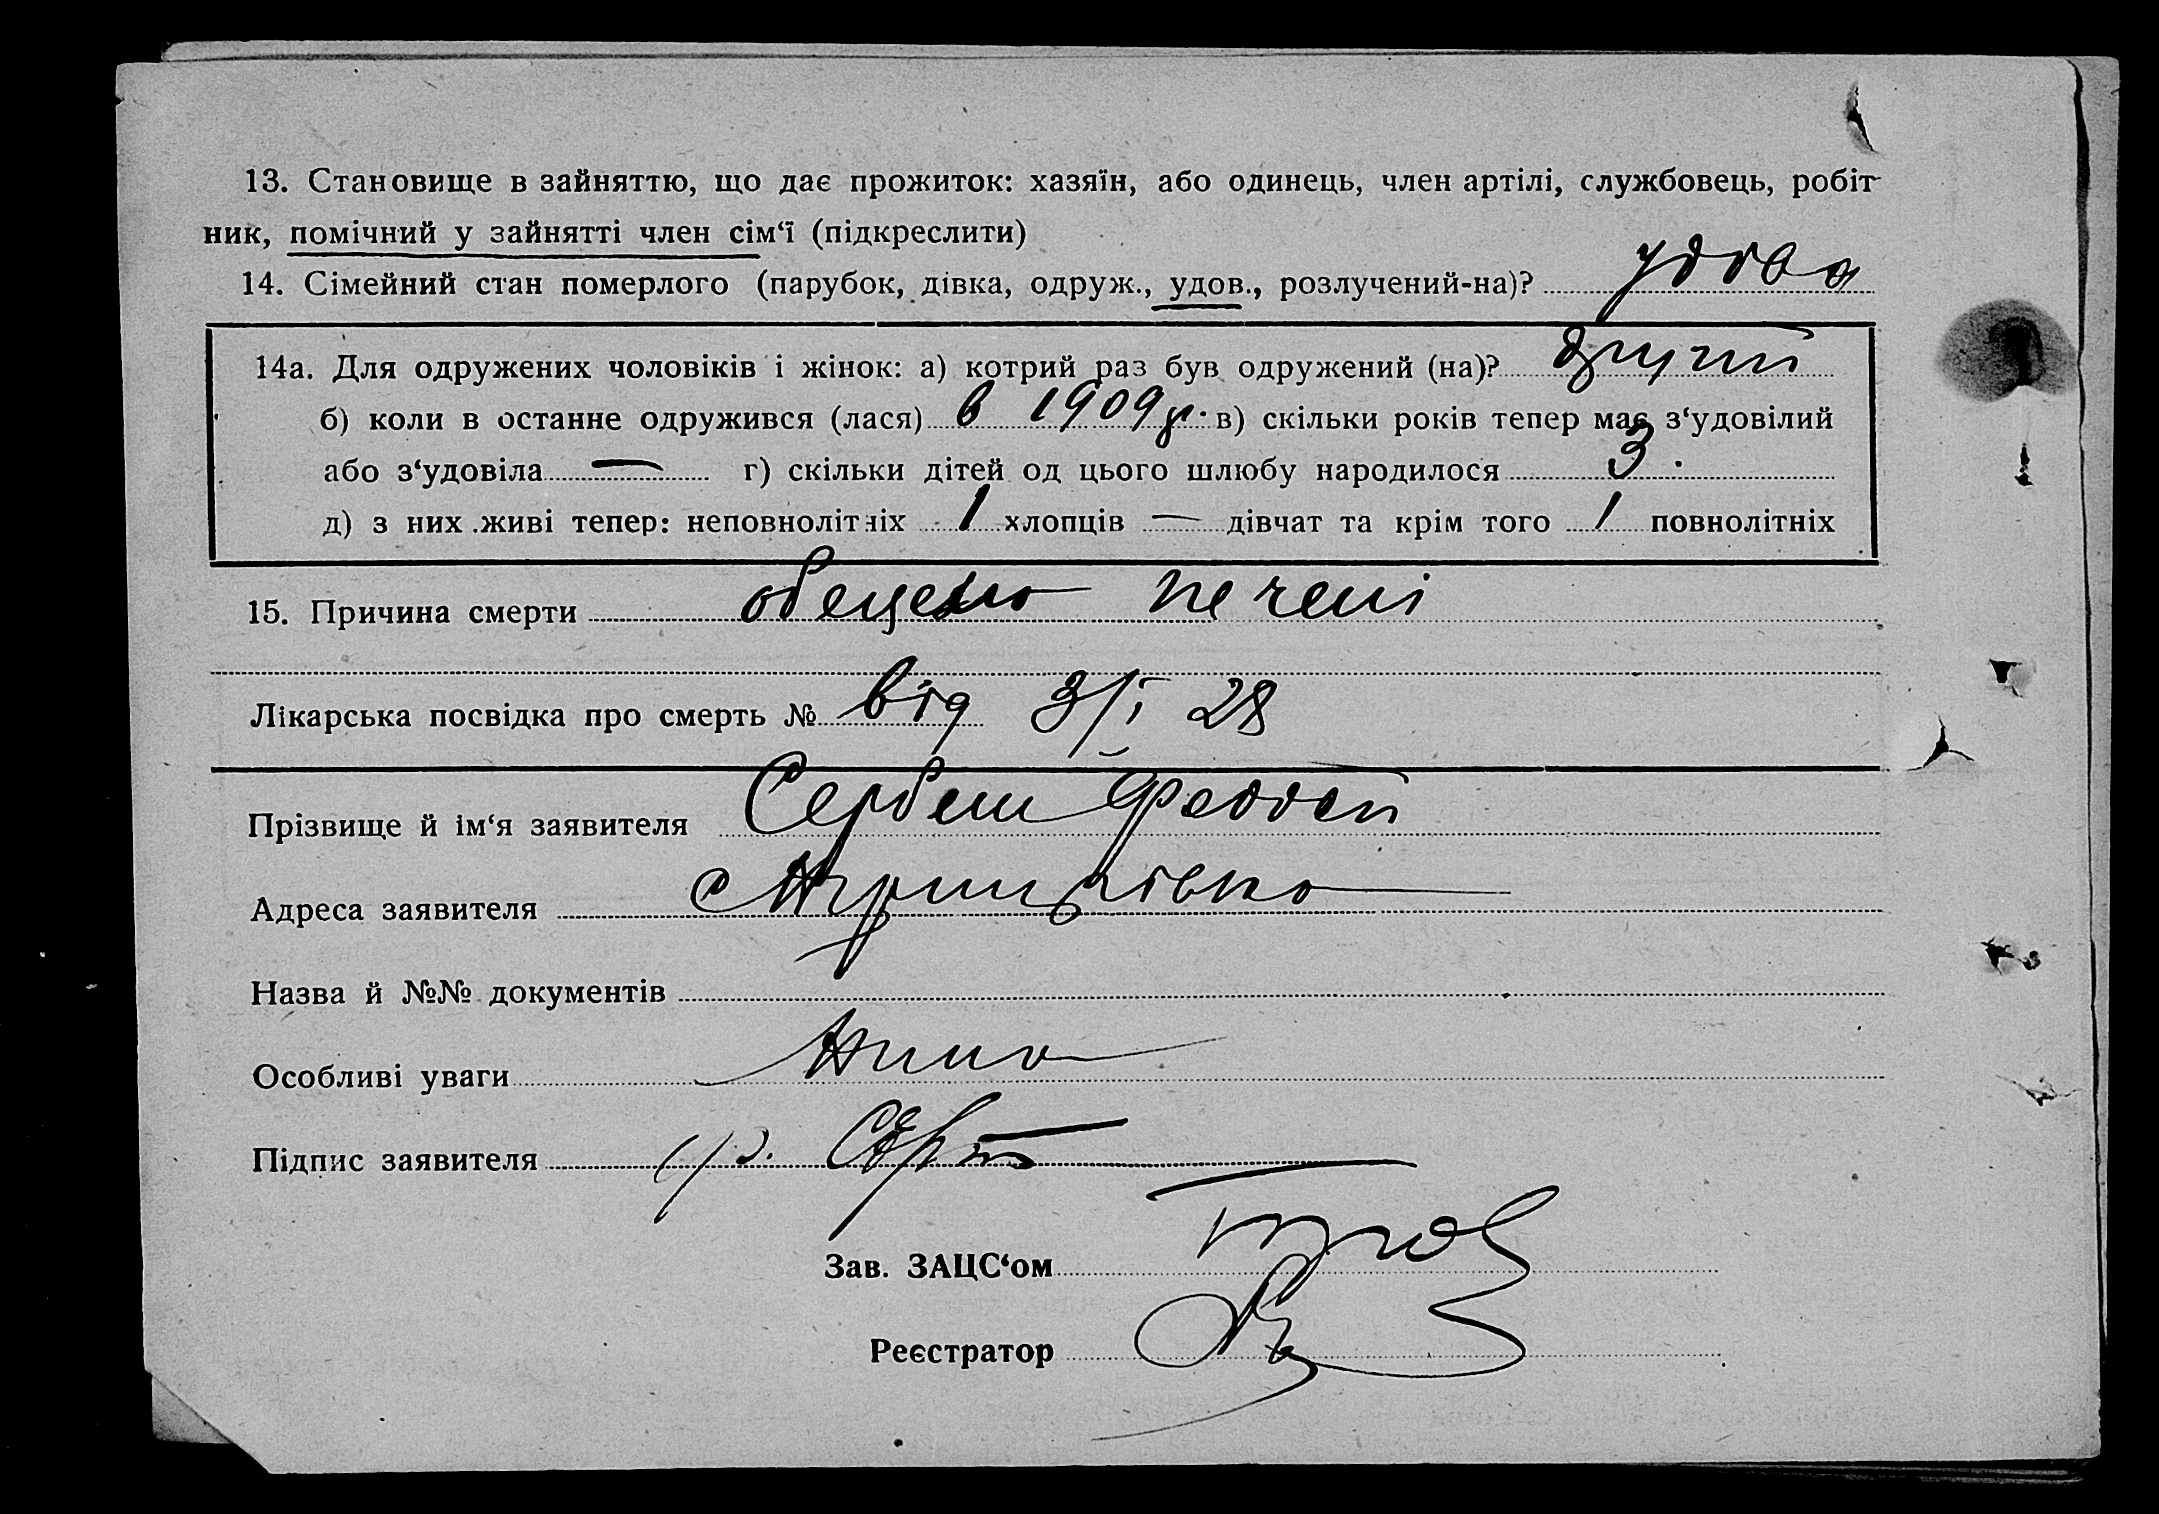 13. Становище в зайняттю, що дає прожиток: хазяїн, або одинець, член артілі, службовець, робіт-
ник, помічний у зайнятті член сім‘ї (підкреслити)
14. Сімейний стан померлого (парубок, дівка, одруж., удов., розлучений-на)? удова
14а. Для одружених чоловіків і жінок: а) котрий раз був одружений (на)? другий
б) коли в останне одружився (лася) в 1909 р. в) скільки років тепер має з‘удовілий
або з‘удовіла — г) скільки дітей од цього шлюбу народилося 3.
д) з них живі тепер: неповнолітніх 1 хлопців — дівчат та крім того 1 повнолітніх
15. Причина смерти печені
Лікарська посвідка про смерть № від 3/I 28
Прізвище й ім‘я заявителя Сербин Федосій
Адреса заявителя
Назва й №№ документів
Особливі уваги
Підпис заявителя
Зав. ЗАЦС‘ом
Реєстратор